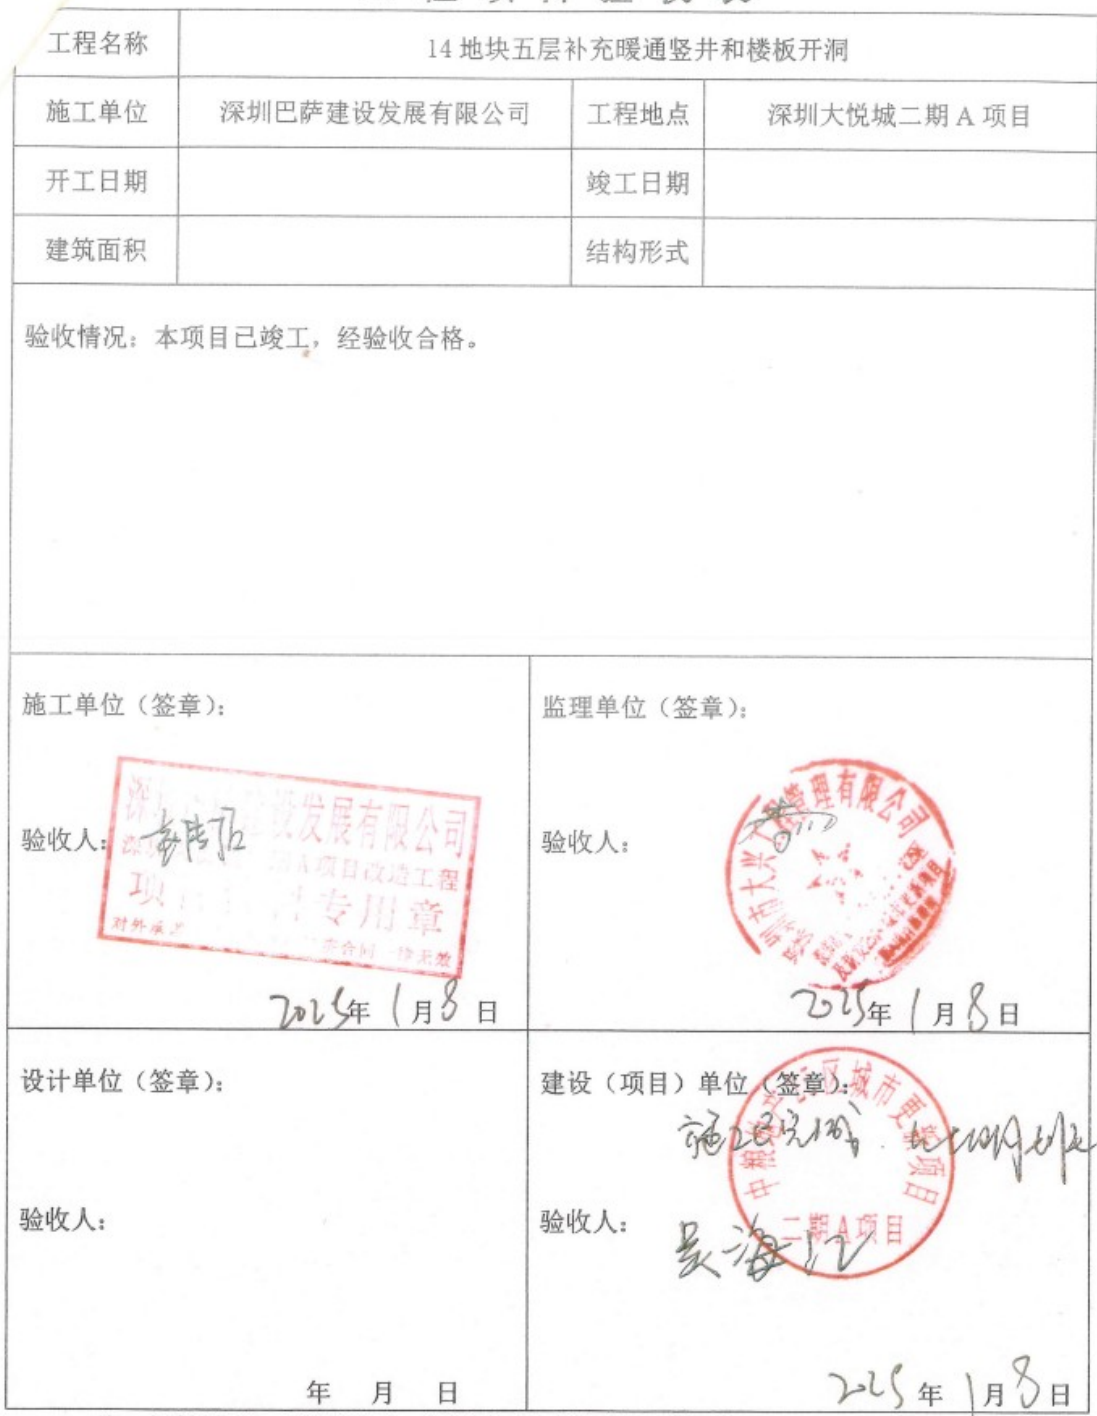 工程名称 14 地块五层补充暖通竖井和楼板开洞
施工单位 深圳巴萨建设发展有限公司 工程地点 深圳大悦城二期 A 项目
开工日期 竣工日期
建筑面积 结构形式
验收情况：本项目已竣工，经验收合格。
施工单位（签章）：
验收人：
建设发展有限公司
A项目改造工程
专用章
对外承
合同一律无效
2025年 1月8日
监理单位（签章）：
验收人：
圳市大兴工程管理有限公司
2025年 1月8日
设计单位（签章）：
验收人：
年 月 日
建设（项目）单位（签章）：
施工已完成
中粮地产 区城市更新项目
二期A项目
验收人：吴海江
2025年 1月8日